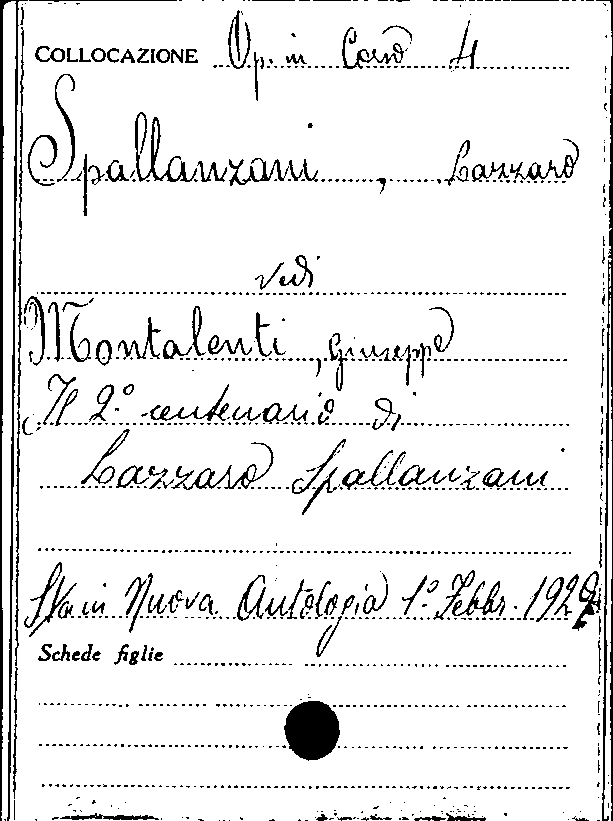 COLLOCAZIONE Op. in Corso 4
Spallanzani, Lazzaro
vedi
Montalenti, Giuseppe
Il 2.° centenario di
Lazzaro Spallanzani
Sta in Nuova Antologia 1.° Febbr. 1929
Schede figlie